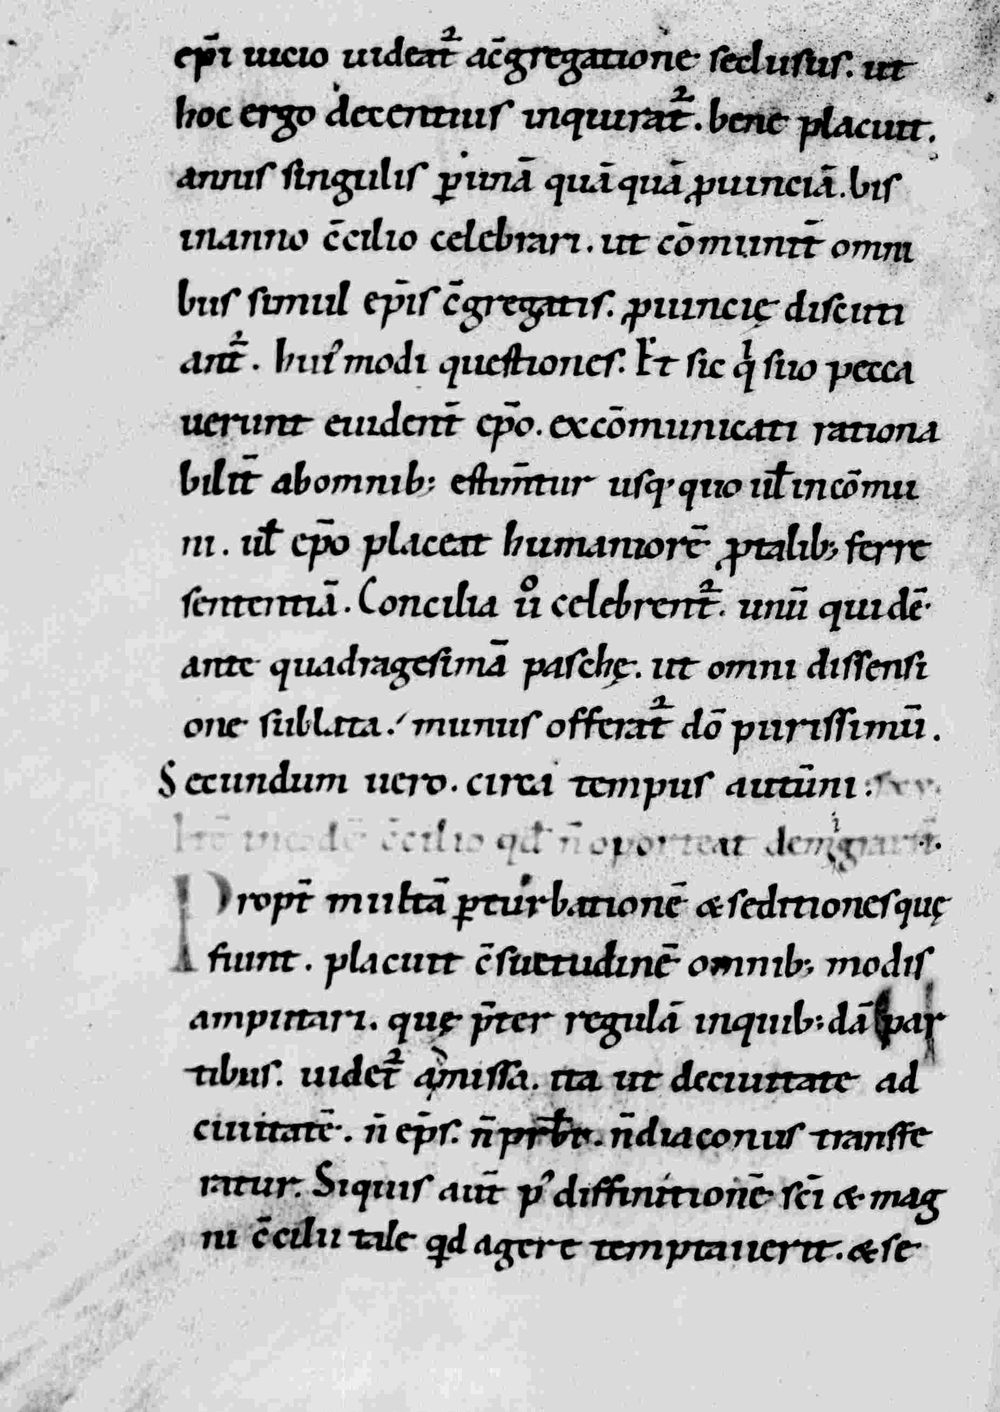 ep̄i uicio uideat̄ᷣ ac̄gregatione seclusus. ut
hoc ergo decentius inquirat̄ᷣ. bene placuit.
annis singulis ꝑunā quāquā ꝓuinciā. bis
inanno c̄cilio celebrari. ut cōmunit̄ omni
bus simul ep̄is c̄gregatis. ꝓuincię discuti
ant̄ᷣ. huiꝰmodi questiones. Et sic qͥ suo pecca
uerunt euident̄ ep̄o. excōmunicati rationa
bilit̄ abomnib; estim̄tur usq· quo ul̄ incōmu
ni. ul̄ ep̄o placeat humaniorē ꝓtalib; ferre
sententiā. Concilia uͦ celebrent̄ᷣ. unū quidē
ante quadragesimā paschę. ut omni dissensi
one sublata. munus offerat̄ᷣ dō purissimū.
Secundum uero. circa tempus autūni:
Itē ineodē c̄cilio qđ n̄ oporteat demigrari.
Propt̄ multā ꝑturbationē & seditiones quę
fiunt. placuit c̄suetudinē omnib; modis
amputari. quę p̄ter regulā inquib;dā par
tibus. uidet̄ᷣ amissa. ita ut deciuitate ad
ciuitatē. n̄ ep̄s. n̄ prb̄r. n̄ diaconus transfe
ratur. Siquis aut̄ pꝰ diffinitionē sc̄i & mag
ni c̄cilii tale qd agere temptauerit. & se